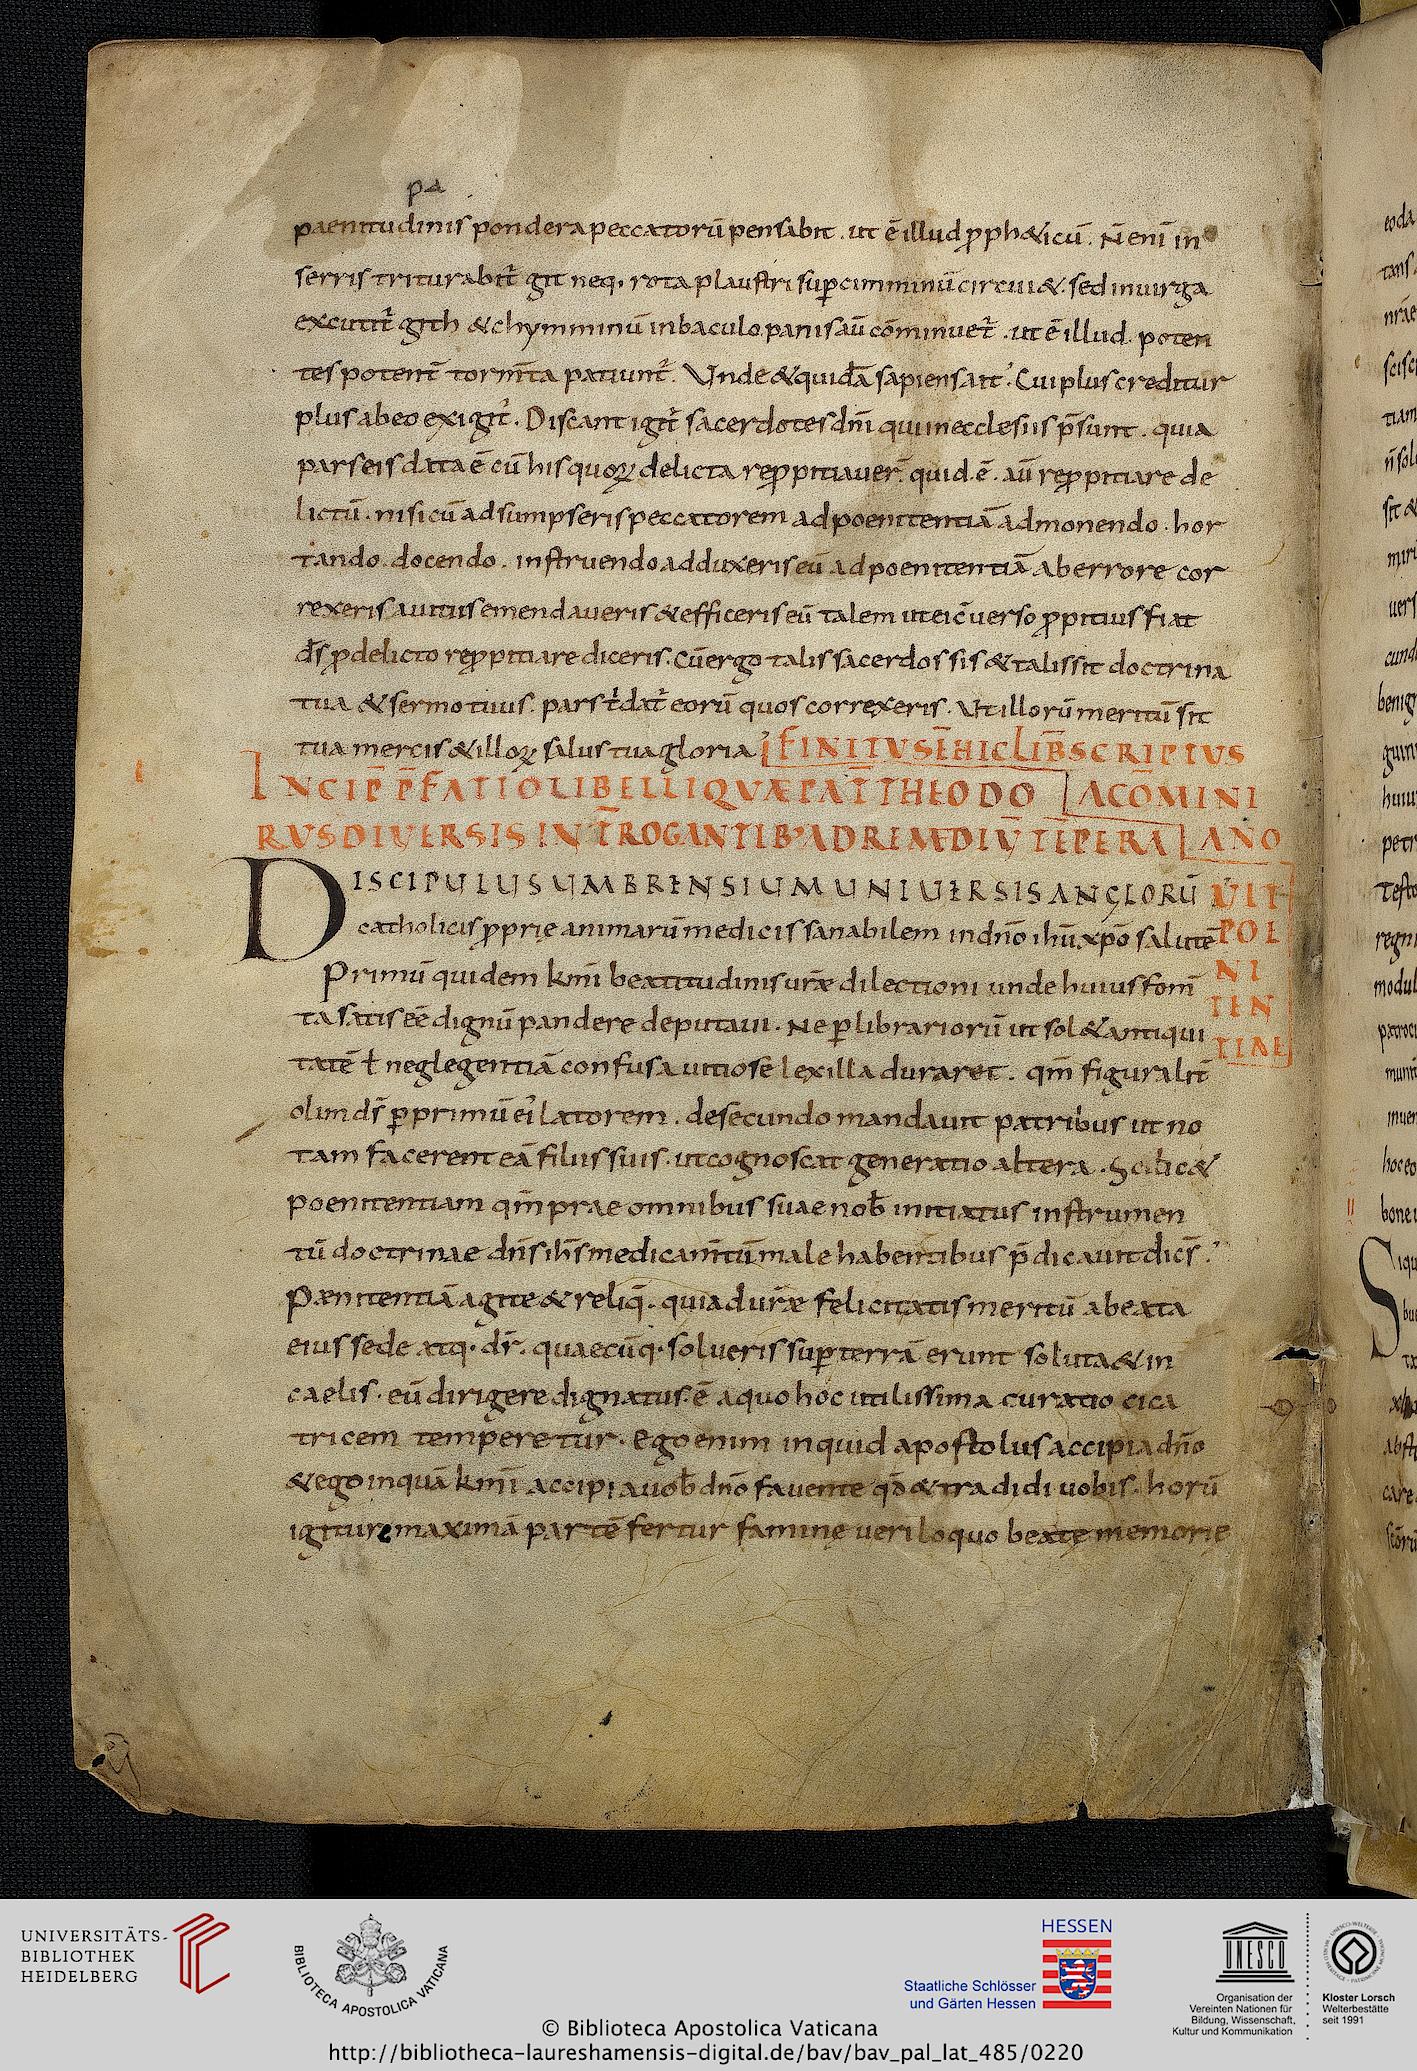 pa
paenitudinis pondera peccatorū pensabit. ut ē illud p̱ph&icū. N̄ enī in
serris triturabit̄ git neq; rota plaustri sup̱ cimminū circui&. sed in uirga
excutit̄ gith & chymminū in baculo. panis aū cōminuet̄. ut ē illud. poten
tes potent̄ torm̄ta patiunt̄. Unde & quidā sapiens ait. Cui plus creditur
plus ab eo exigit̄. Discant igit̄ sacerdotes dn̄i qui in ecclesiis p̄sunt. quia
pars eis data ē cū his quoꝝ delicta rep̱pitiauer̄. quid. ē. aū rep̱pitiare de
lictū. nisi cū adsumpseris peccatorem ad poenitentiā admonendo. hor
tando. docendo. instruendo adduxeris eū ad poenitentiā ab errore cor
rexeris a uitiis emendaueris & efficeris eū talem ut ei c̄uerso p̱pitius fiat
d̄s p̱ delicto rep̱pitiare diceris. Cū ergo talis sacerdos sis & talis sit doctrina
tua & sermo tuus. pars t̄ dat̄ eorū quos correxeris. Ut illorū meritū sit
tua mercis & illoꝝ salus tua gloria. FINITUS Ē HIC LIB̄ SCRIPTUS
INCIP̄ P̄FATIO LIBELLI QUÆ PAT̄ THEODO A COMINI
RUS DIVERSIS INT̄ROGANTIB; AD REMDIŪ TĒPERA ANO
DISCIPULUS UMBRENSIUM UNIUERSIS ANGLORŪ UIT
catholicis p̱prie animarū medicis sanabilem in dn̄o ihū xp̄o salutē POE
Primū quidem km̄i beatitudinis ur̄æ dilectioni unde huius fom̄ NI
ta satis ēē dignū pandere deputaui. Ne p̱ librariorū ut sol& antiqui TEN
tatē ł neglegentiā confusa uitiose lex illa duraret. qm̄ figuralit̄ TIAE
olim d̄s p̱ primū ei latorem. de secundo mandauit patribus ut no
tam facerent eā filiis suis. ut cognoscat generatio altera. Scilic&
poenitentiam qm̄ prae omnibus suae nob̄ initiatus instrumen
tū doctrinae dn̄s ih̄s medicam̄tū male habentibus p̄dicauit dic̄s.
Pænitentiā agite & reliq̄. quia d ur̄æ felicitatis meritū a beata
eius sede atq; dr̄. quaecūq; solueris sup̱ terrā erunt soluta & in
caelis. eū dirigere dignatus. ē a quo hoc utilissima curatio cica
tricem temperetur. Ego enim inquid apostolus accipi a dn̄o
& ego inquā km̄i accipi a uob̄ dn̄o fauente qd̄ & tradidi uobis. horū
igitur maximā partē fertur famine ueriloquo beatę memorię
UNIVERSITÄTS-
BIBLIOTHEK
HEIDELBERG
BIBLIOTECA APOSTOLICA VATICANA
HESSEN
Staatliche Schlösser
und Gärten Hessen
UNESCO
Organisation der
Vereinten Nationen für
Bildung, Wissenschaft,
Kultur und Kommunikation
Kloster Lorsch
Welterbestätte
seit 1991
© Biblioteca Apostolica Vaticana
http://bibliotheca-laureshamensis-digital.de/bav/bav_pal_lat_485/0220